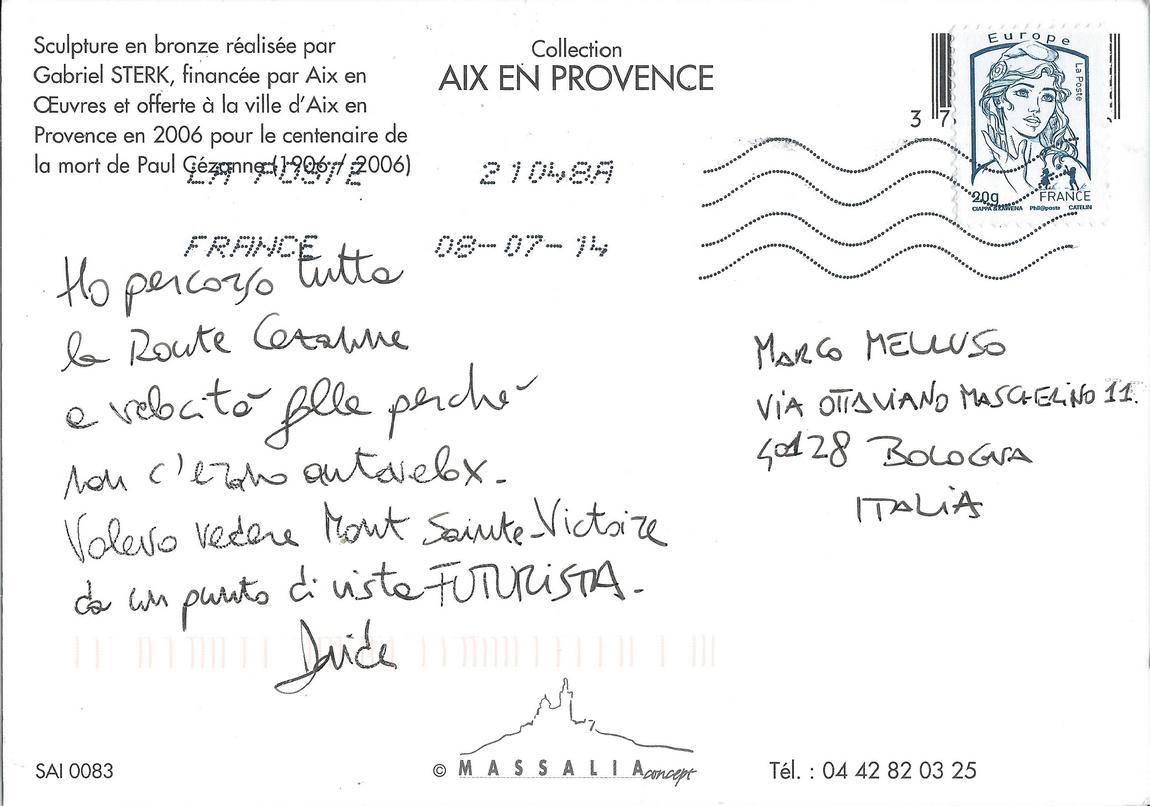 Sculpture en bronze réalisée par
Gabriel STERK, financée par Aix en
Œuvres et offerte à la ville d'Aix en
Provence en 2006 pour le centenaire de
la mort de Paul Cézanne (1906 / 2006)
Collection
AIX EN PROVENCE
37
Europe
La Poste
20g
FRANCE
CIAPPA & KAWENA Phil@poste CATELIN
LA POSTE 21048A
FRANCE 08-07-14
Ho percorso tutta
la Route Cezanne
a velocità folle perché
non c'erano autovelox.
Volevo vedere Mont Sainte-Victoire
da un punto di vista FUTURISTA.
Davide
MARCO MELLUSO
VIA OTTAVIANO MASCHERINO 11.
40128 BOLOGNA
ITALIA
SAI 0083
© MASSALIA concept
Tél. : 04 42 82 03 25